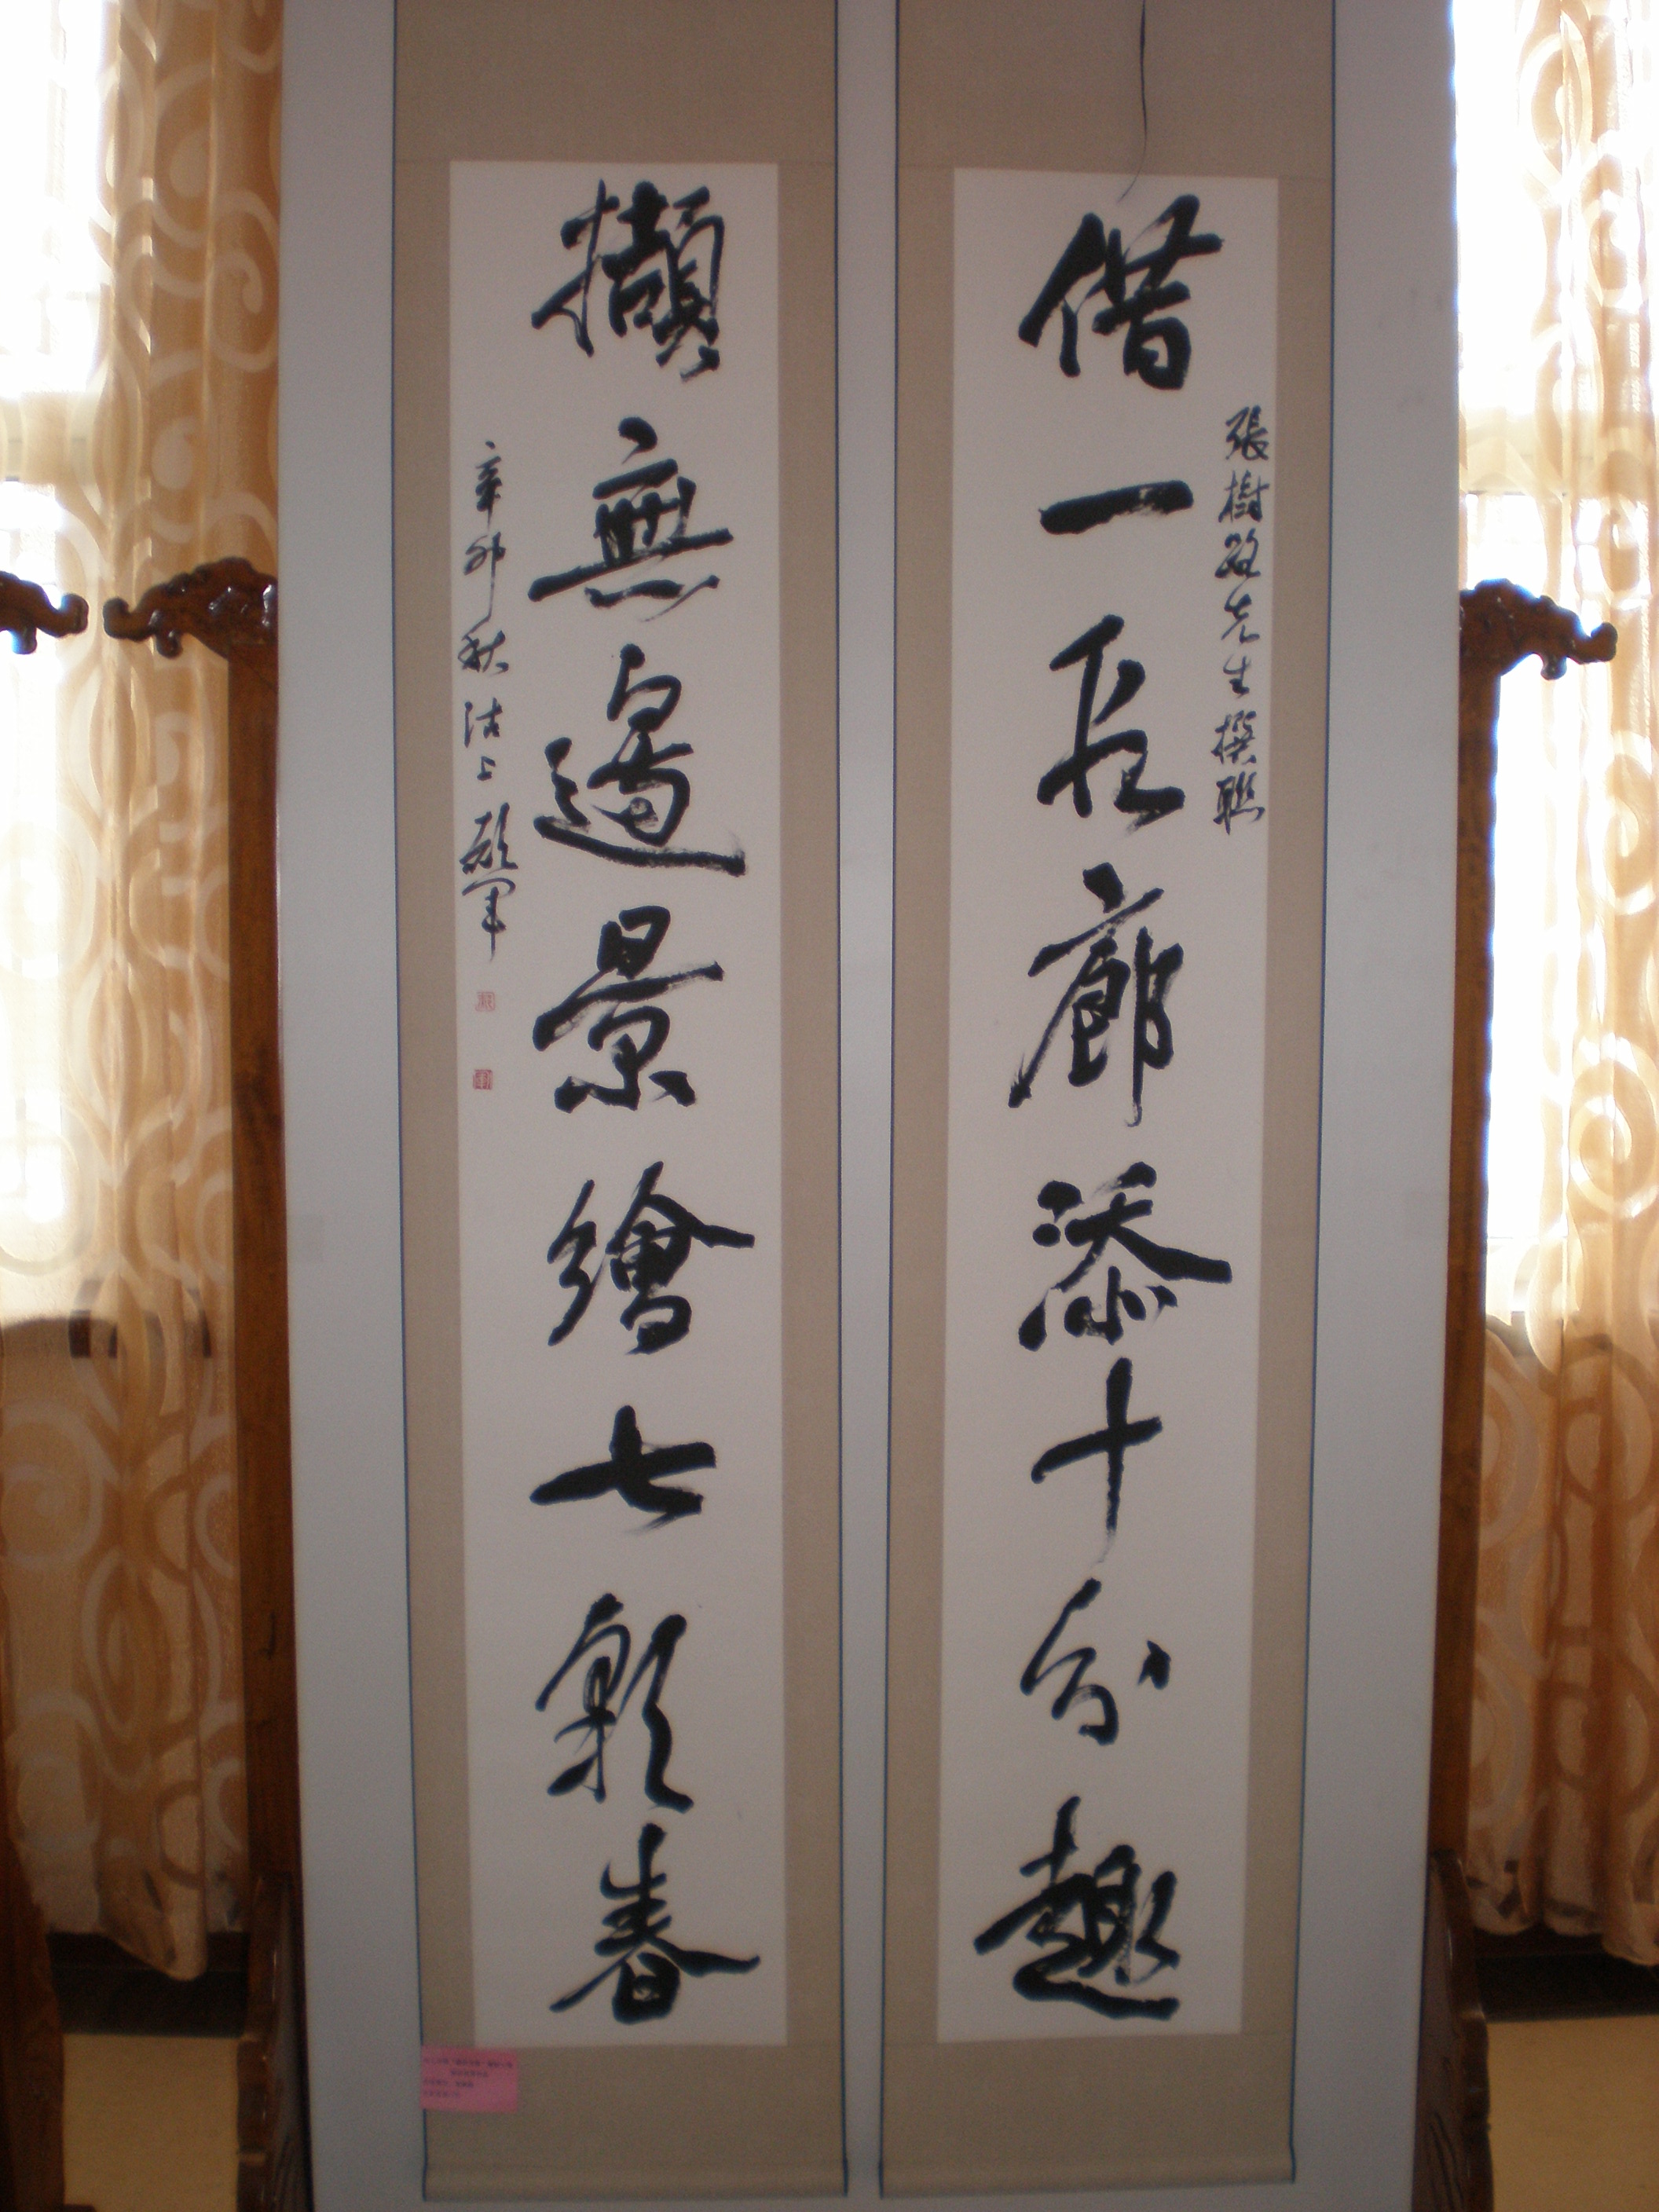 借一長廊添十分趣
張樹路先生撰聯
擷無邊景繪七彩春
辛卯秋沽上顧軍